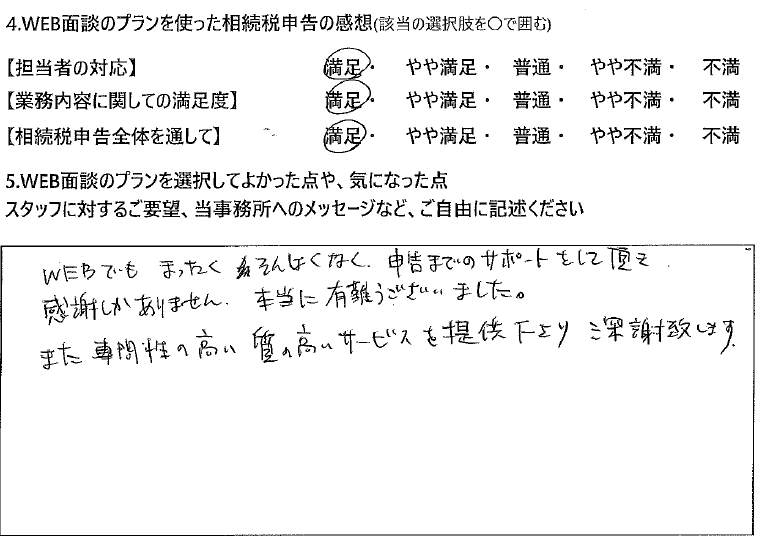 4.WEB面談のプランを使った相続税申告の感想(該当の選択肢を〇で囲む)
【担当者の対応】 満足・ やや満足・ 普通・ やや不満・ 不満
【業務内容に関しての満足度】 満足・ やや満足・ 普通・ やや不満・ 不満
【相続税申告全体を通して】 満足・ やや満足・ 普通・ やや不満・ 不満
5.WEB面談のプランを選択してよかった点や、気になった点
スタッフに対するご要望、当事務所へのメッセージなど、ご自由に記述ください
WEBでも まったく そんしょくなく、申告までのサポートをして頂き
感謝しかありません。本当に有難うございました。
また専門性の高い 質の高いサービスを提供下さり 深謝致します。